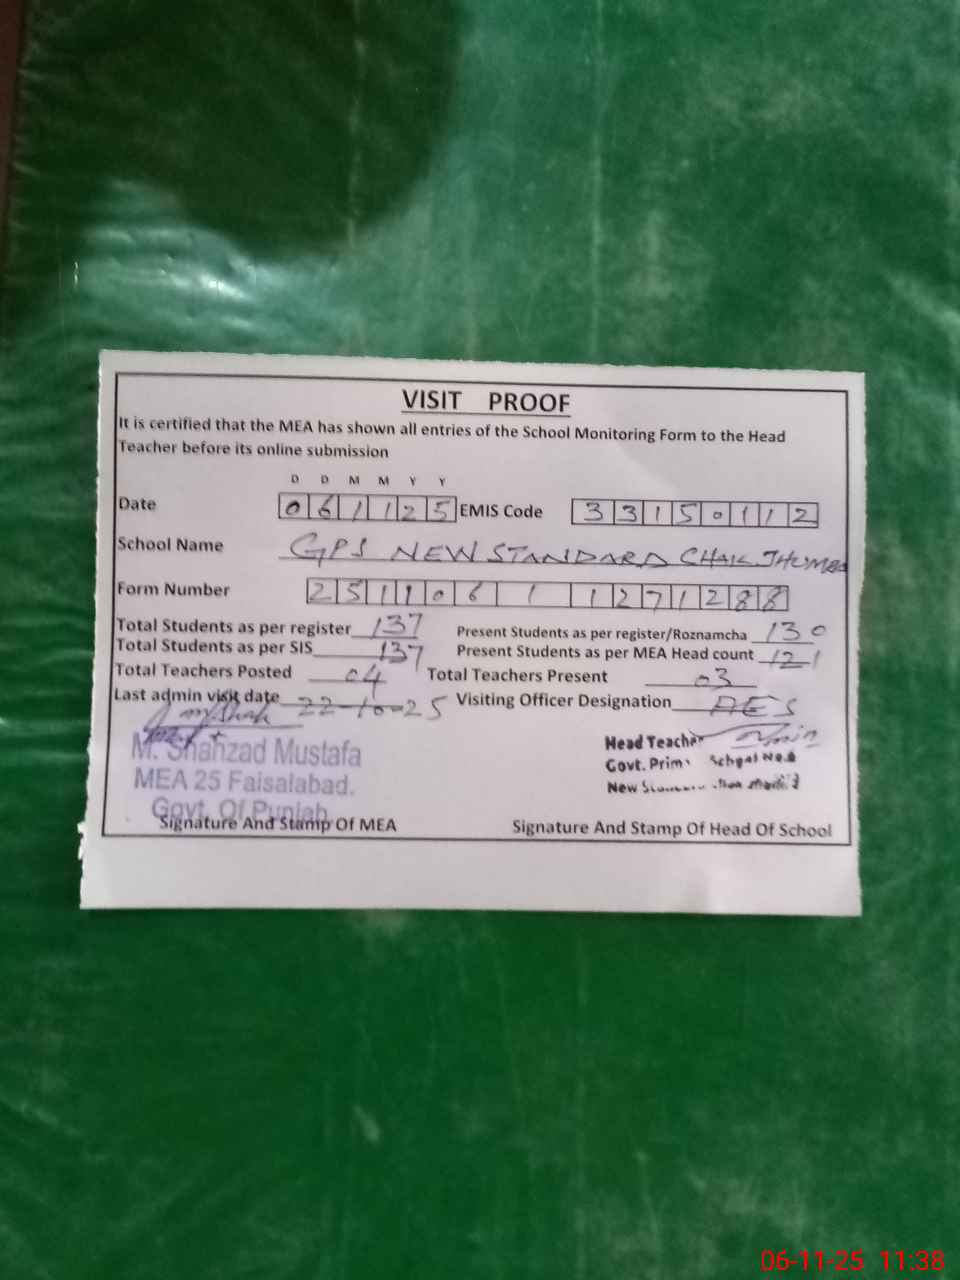 VISIT PROOF
It is certified that the MEA has shown all entries of the School Monitoring Form to the Head
Teacher before its online submission
D D M M Y Y
Date 061125 EMIS Code 33150112
School Name GPS NEW STANDARD CHAK JHUMRA
Form Number 251106 1 1271288
Total Students as per register 137 Present Students as per register/Roznamcha 130
Total Students as per SIS 137 Present Students as per MEA Head count 121
Total Teachers Posted 04 Total Teachers Present 03
Last admin visit date 22-10-25 Visiting Officer Designation AES
M. Shahzad Mustafa Head Teacher
MEA 25 Faisalabad. Govt. School No.
Govt. Of Punjab New
Signature And Stamp Of MEA Signature And Stamp Of Head Of School
06-11-25 11:38